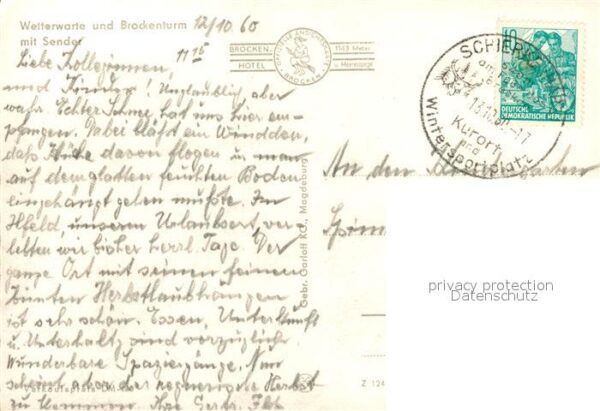 Wetterwarte und Brockenturm
mit Sender
12/10.60
11 15
Liebe Kolleginnen,
und Kinder! Unglaublich, aber
wahr. Echter Schnee, hat uns hier em-
pfangen. Dabei bläst ein Winddon,
daß Hüte davon flogen u. man
auf dem glatten feuchten Boden
eingehängt gehen mußte. In
Ilfeld, unserem Urlaubsort, ver-
lebten wir bisher herrl. Tage. Der
ganze Ort mit seinen feinen
bunten Herbstlaubhängen
ist sehr schön. Essen, Unterkunft
u. Unterhaltg sind vorzüglich.
Wunderbare Spaziergänge. Nun
scheint aber der regnerische Herbst
zu kommen. Ihre Gertr.
BROCKEN-
HOTEL
1143 Meter
ü. Meeresspiegel
BROCKEN
10
DEUTSCHE
DEMOKRATISCHE REPUBLIK
SCHIERKE
13.10.60-17
Kurort
und
Wintersportplatz
An den
Gebr. Garloff KG., Magdeburg
Z 124
privacy protection
Datenschutz